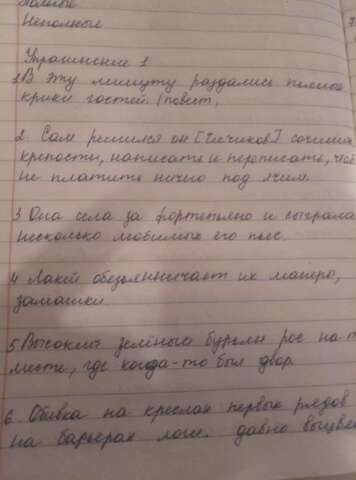 Полные
Неполные
Упражнение 1
1. В эту минуту раздались пьяные
крики гостей. (повест,
2. Сам решился он [Чичиков] сочинить
крепости, написать и переписать, чтоб
не платить ничего подьячим.
3 Она села за фортепьяно и сыграла
несколько любимых его пьес.
4 Лакей обезьянничает их манеры,
замашки
5 Высокий зелёный бурьян рос на т
месте, где когда-то был двор
6. Обивка на креслах первых рядов
на барьерах лож. давно выцвел